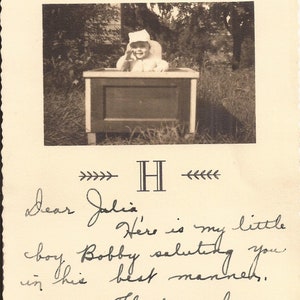 H
Dear Julia
Here is my little
boy Bobby saluting you
in his best manner.